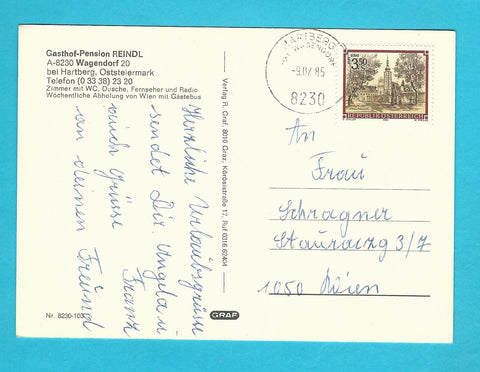 Gasthof-Pension REINDL
A-8230 Wagendorf 20
bei Hartberg, Oststeiermark
Telefon (0 33 38) 23 20
Zimmer mit WC, Dusche, Fernseher und Radio
Wöchentliche Abholung von Wien mit Gästebus
Herzliche Urlaubsgrüsse
sendet Dir Angela u
Franz
auch Grüsse
an deinen Freund
Nr. 8230-103
Verlag R. Graf, 8010 Graz, Körösistraße 17, Ruf 0316 62404
GRAF
HARTBERG
WAGENDORF
-9.07.85
8230
3.50
REPUBLIK ÖSTERREICH
An
Frau
Schragner
3/7
1050 Wien